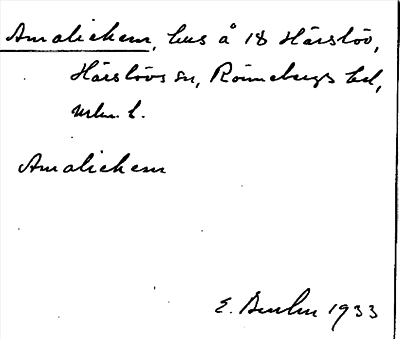 Amaliehem, hus å 18 Härslöv,
Härslövs sn, Rönnebergs hd,
Mlm. l.
Amaliehem
E. 1933